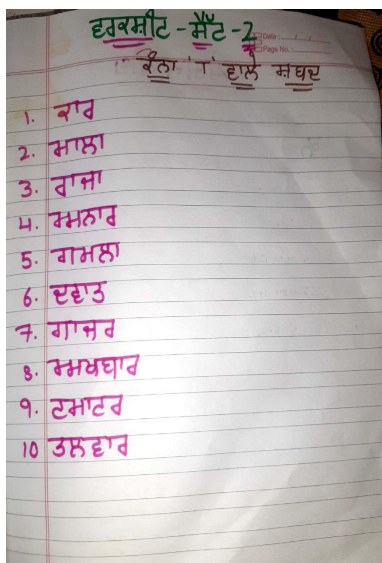 ਵਰਕਸ਼ੀਟ - ਸੈੱਟ - 2
Date :
Page No. :
ਕੰਨਾ 'ਾ' ਵਾਲੇ ਸ਼ਬਦ
1. ਕਾਰ
2. ਮਾਲਾ
3. ਰਾਜਾ
4. ਅਨਾਰ
5. ਗਮਲਾ
6. ਦਵਾਤ
7. ਗਾਜਰ
8. ਅਖਬਾਰ
9. ਟਮਾਟਰ
10 ਤਲਵਾਰ